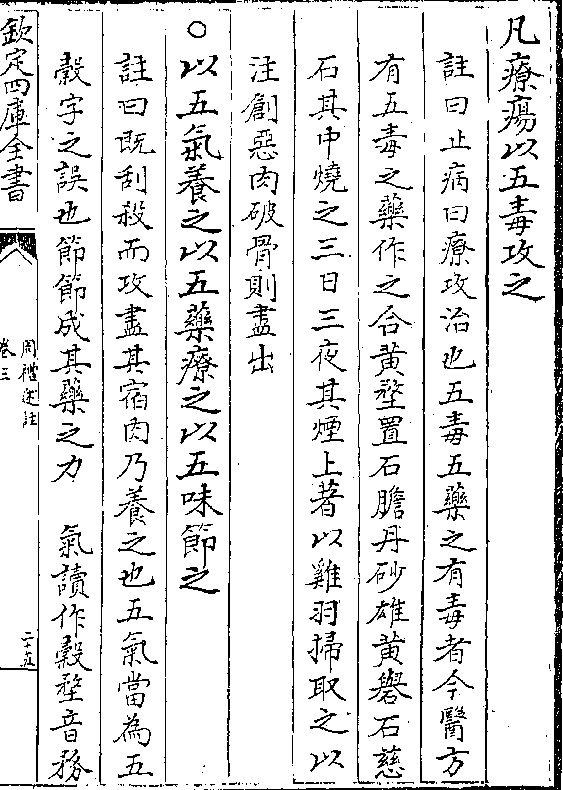 凡療瘍以五毒攻之
註曰止病曰療攻治也五毒五藥之有毒者今醫方
有五毒之藥作之合黄堥置石膽丹砂雄黄礜石慈
石其中燒之三日三夜其煙上著以雞羽掃取之以
注創惡肉破骨則盡出
○以五氣養之以五藥療之以五味節之
註曰既刮殺而攻盡其宿肉乃養之也五氣當為五
穀字之誤也節節成其藥之力　氣讀作穀堥音務
欽定四庫全書
周禮述註
卷三
二十五